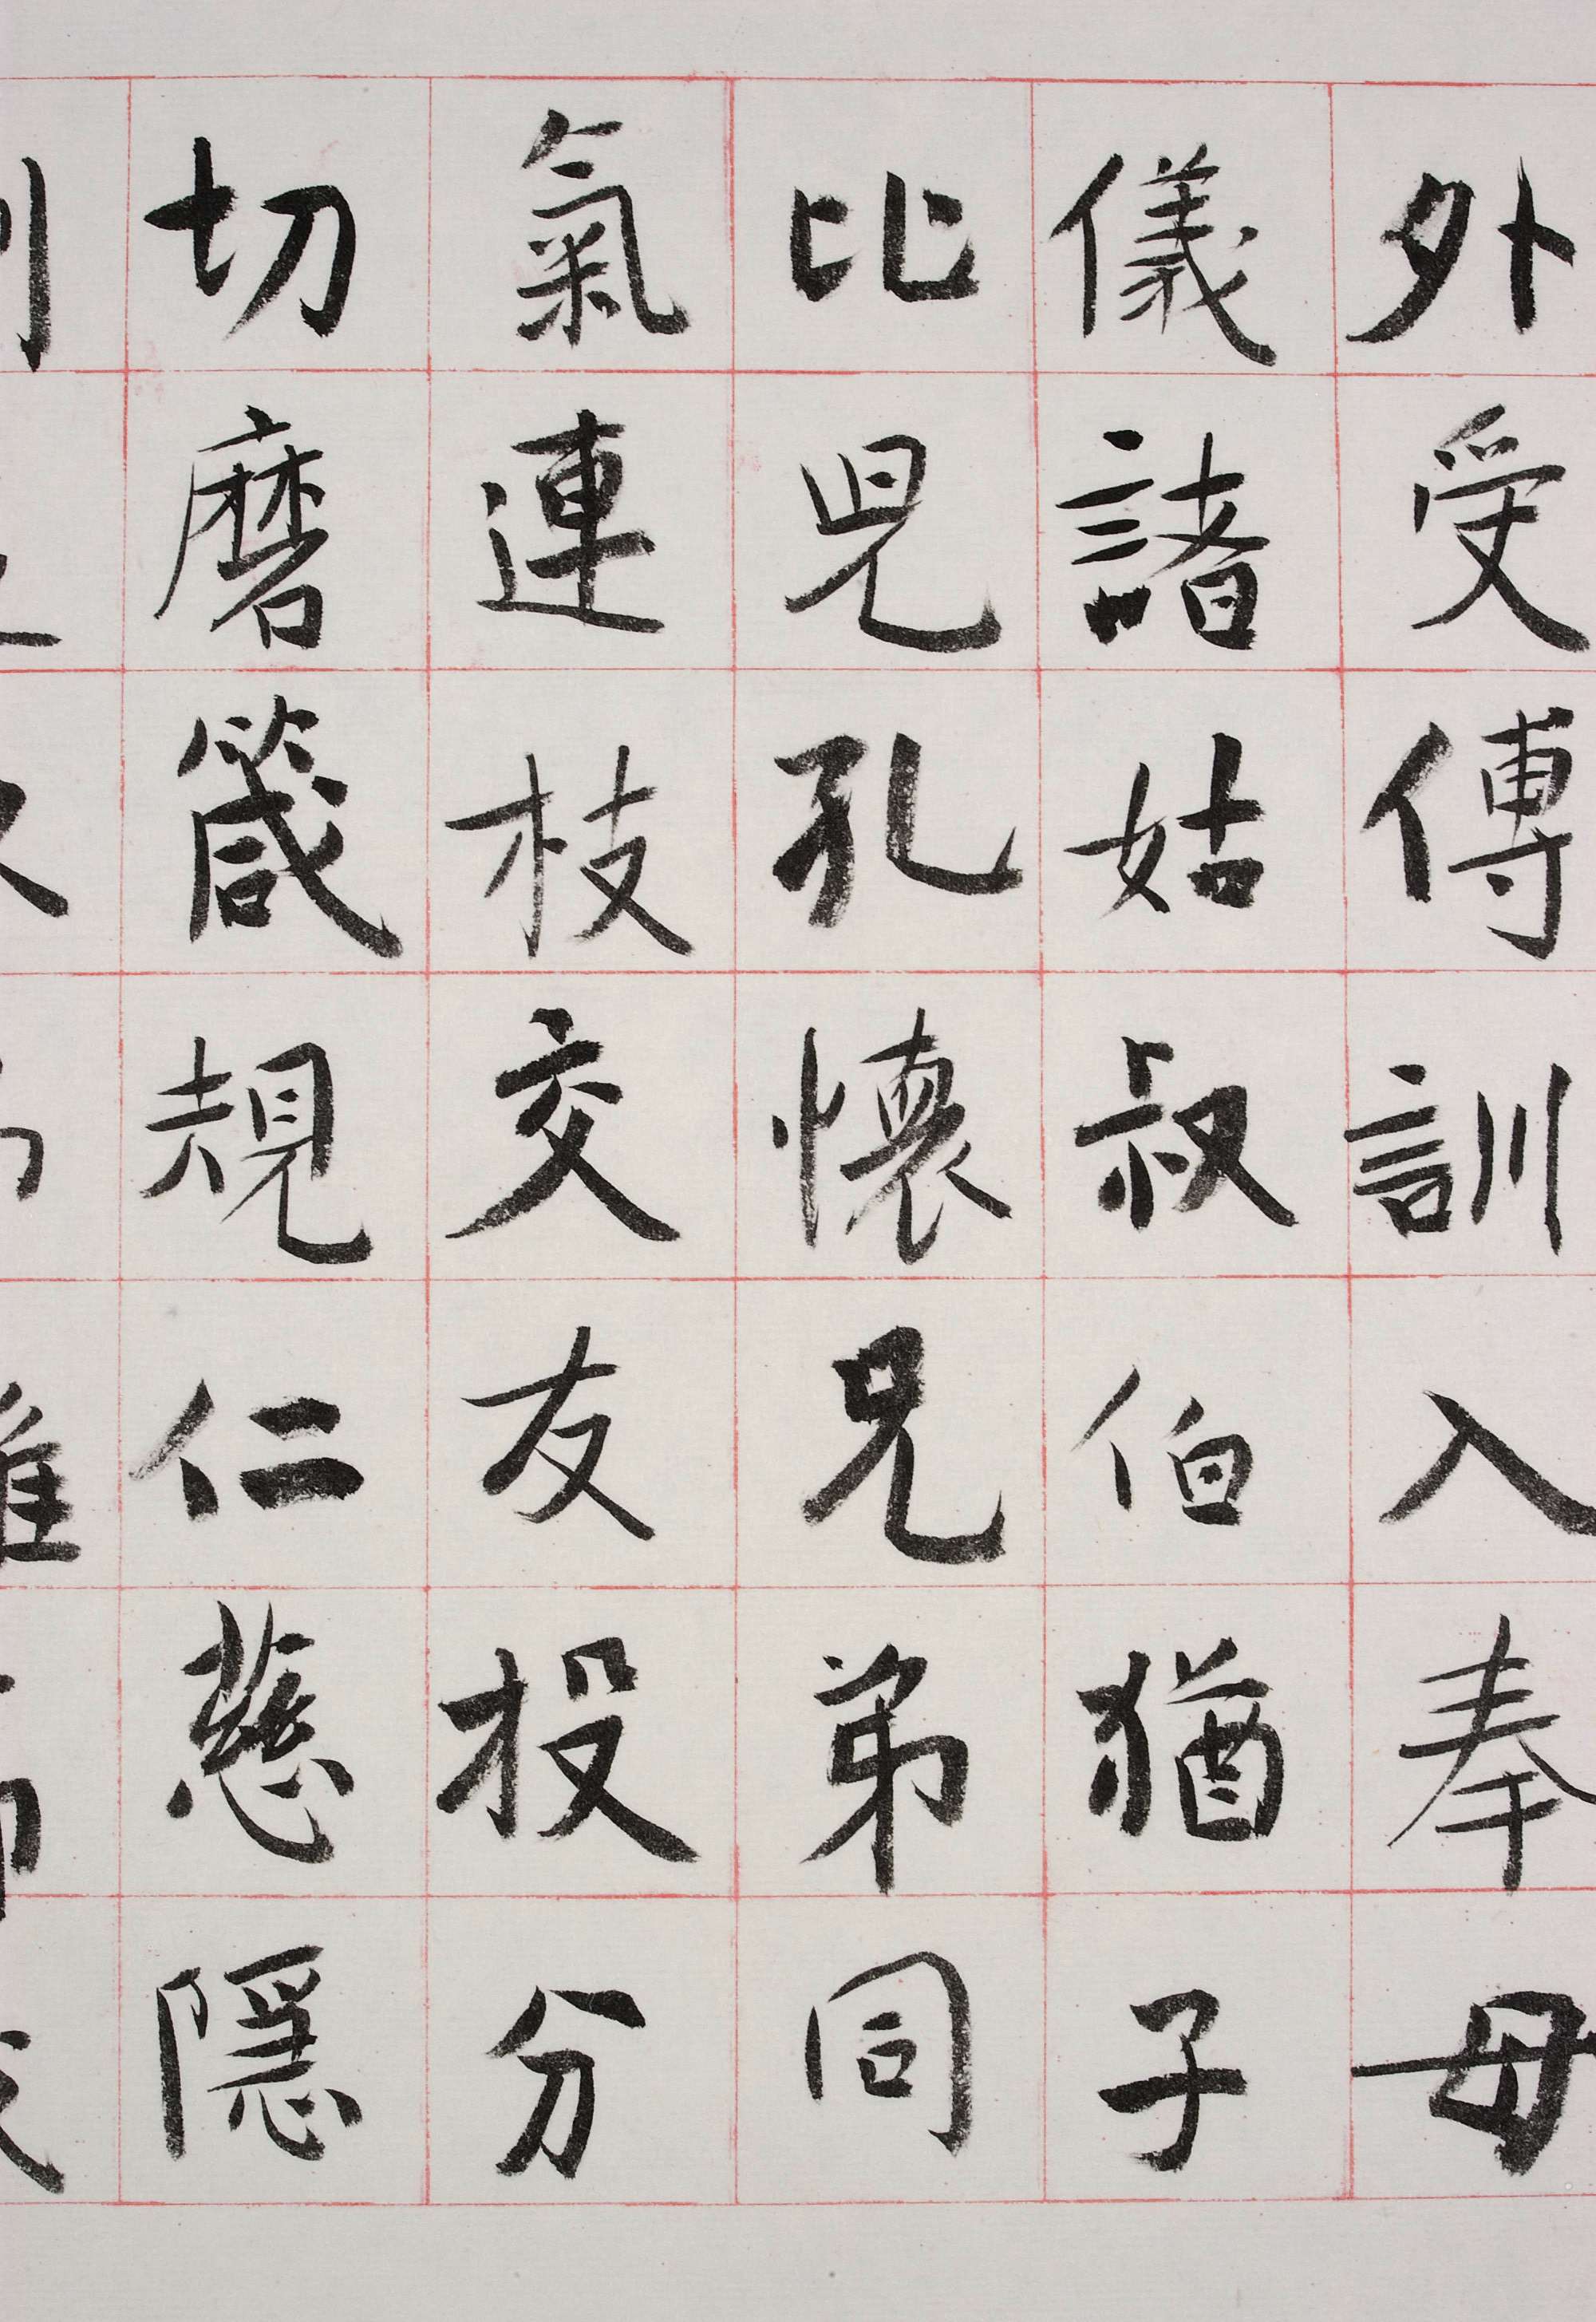 外受傅訓入奉母
儀諸姑叔伯猶子
比兒孔懷兄弟同
氣連枝交友投分
切磨箴規仁慈隱